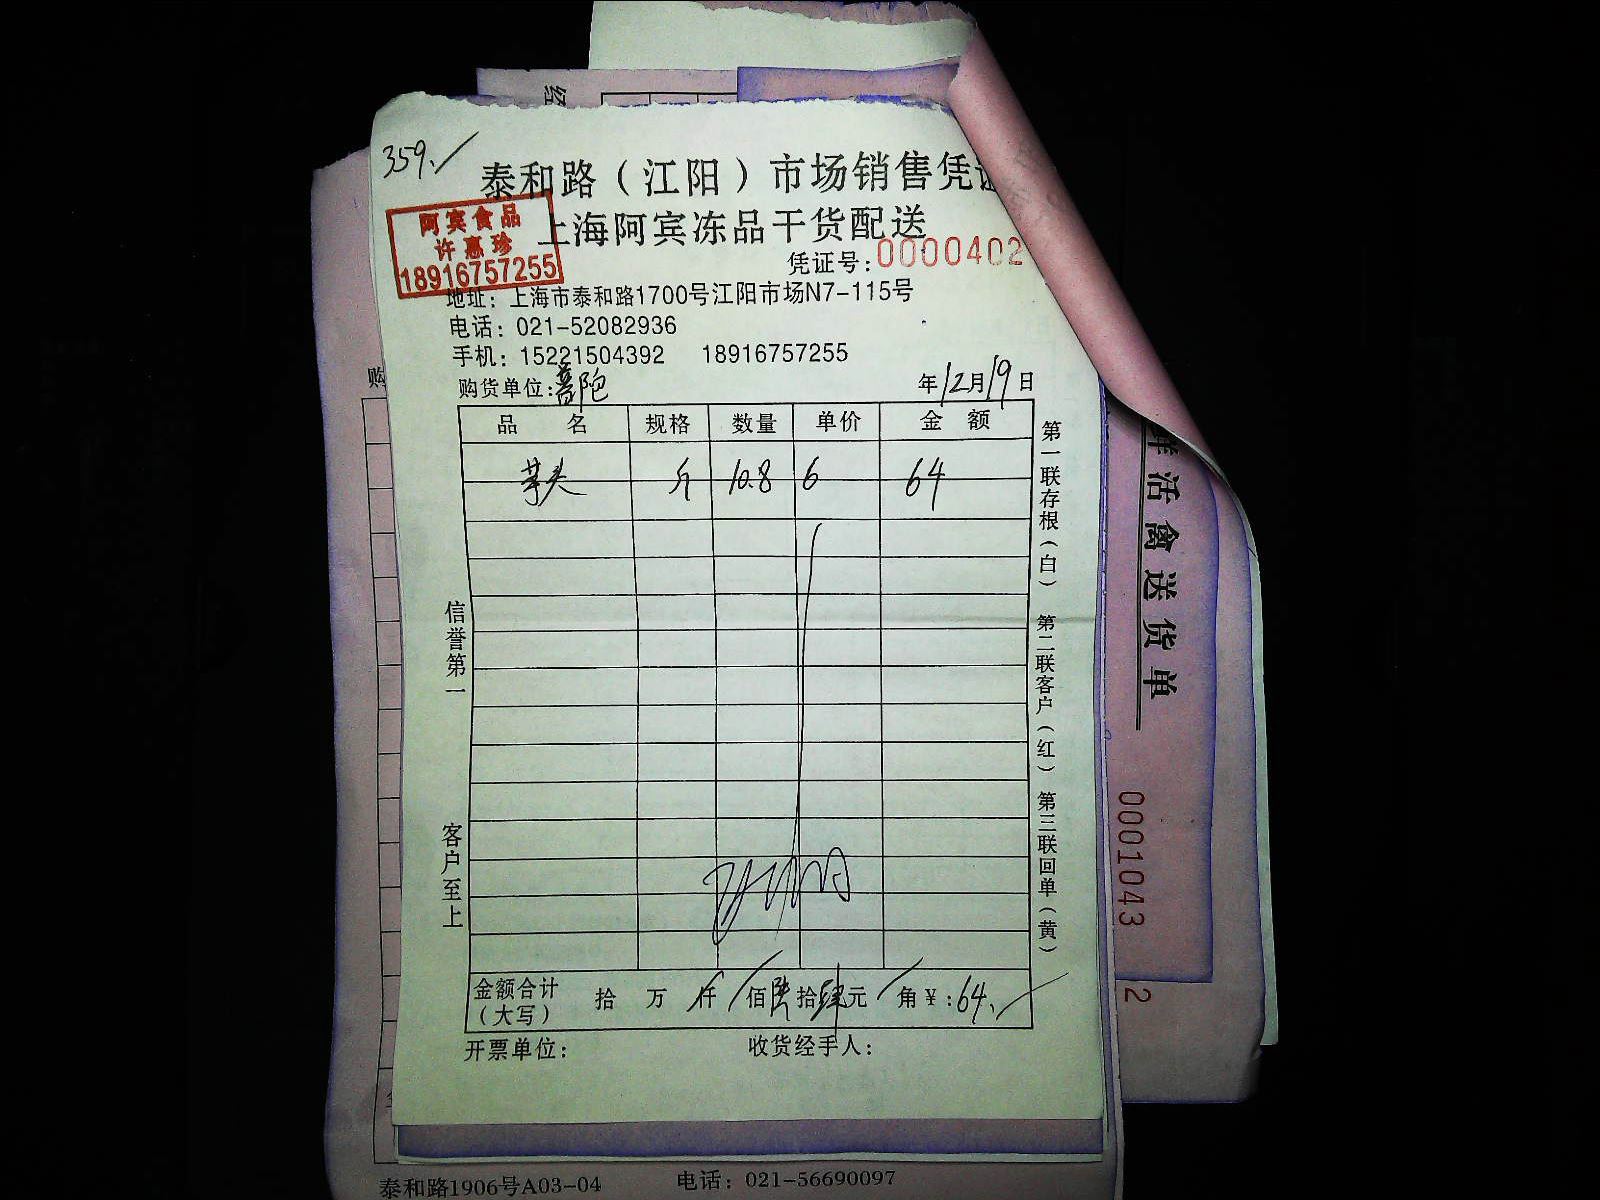 359.
泰和路（江阳）市场销售凭证
上海阿宾冻品干货配送
阿宾食品
许惠珍
18916757255
凭证号：0000402
地址：上海市泰和路1700号江阳市场N7-115号
电话：021-52082936
手机：15221504392 18916757255
购货单位：普陀 年12月19日
品 名 规格 数量 单价 金 额
芋头 斤 10.8 6 64
第一联存根（白） 第二联客户（红） 第三联回单（黄）
信誉第一 客户至上
金额合计（大写） 拾 万 仟 佰陆拾肆元 角￥：64.
开票单位： 收货经手人：
购
鲜活禽送货单
0001043
2
泰和路1906号A03-04 电话：021-56690097